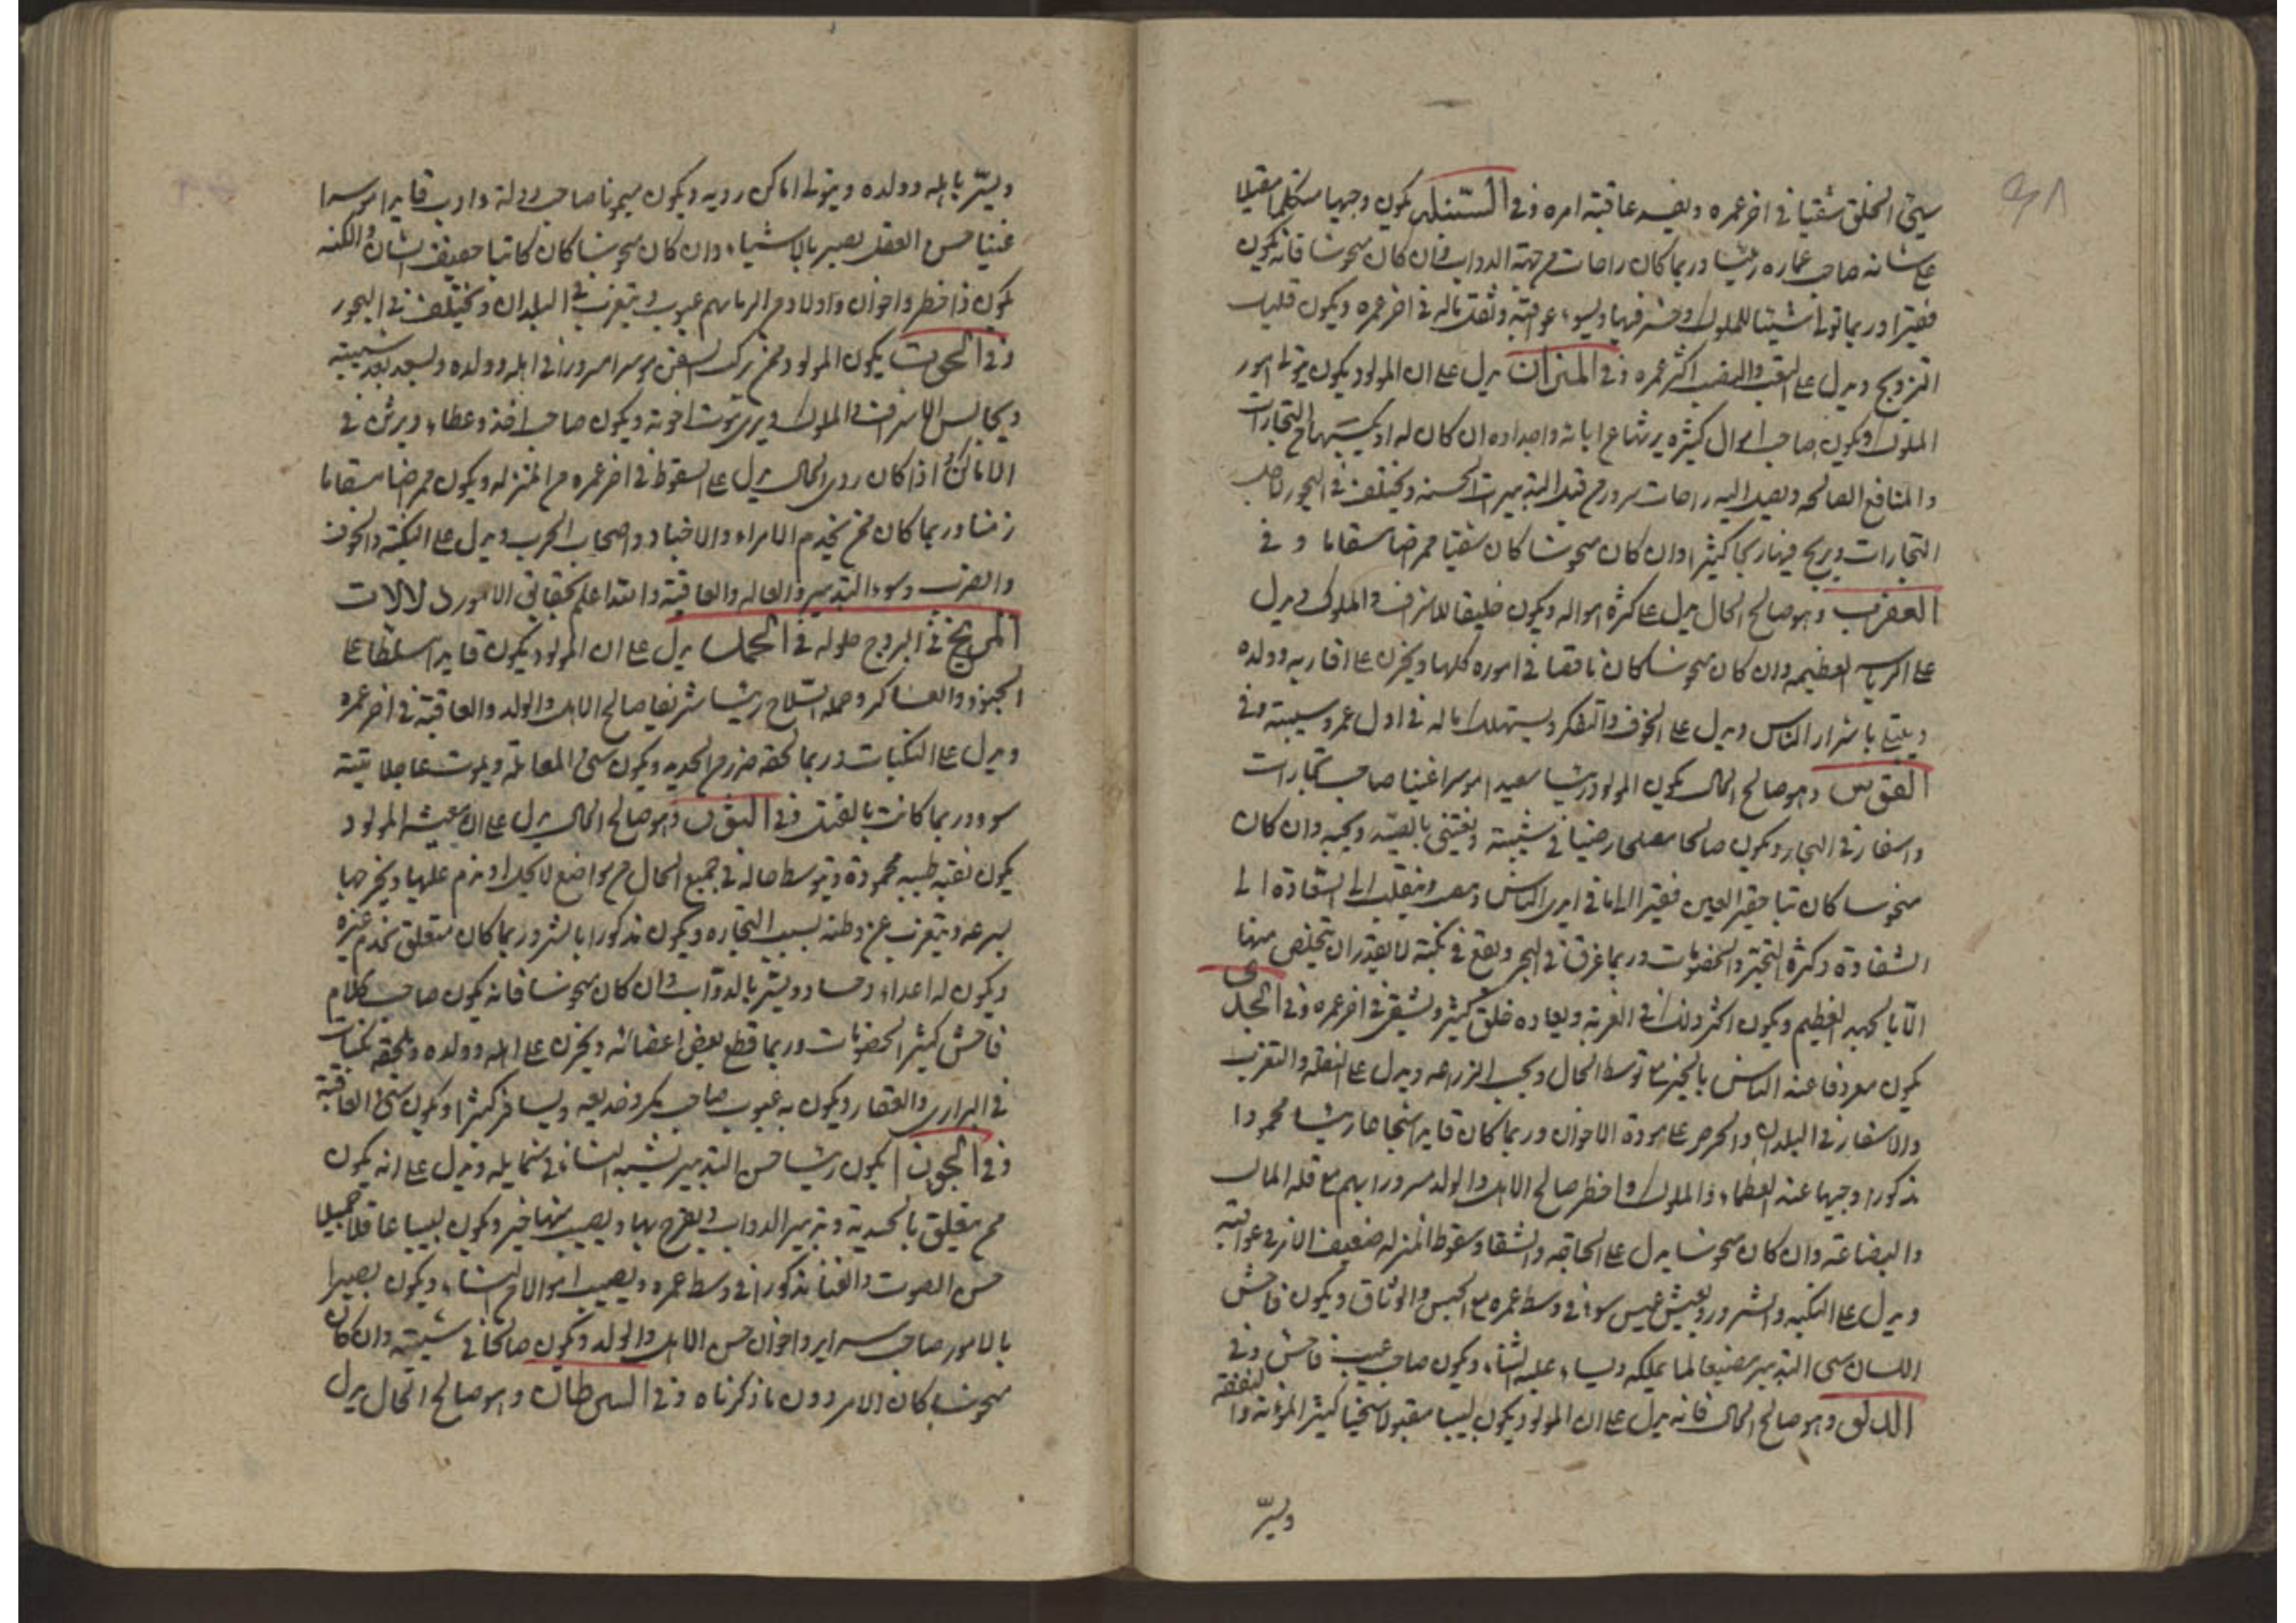 سيئ الخلق شقيا في اخر عمره ويفسد عاقبة امره وفي السنبله يكون وجيها متكلما مقبلا
على شانه صاحب عماره رئيسا وربما كان راحات من جهة الدواب وان كان منحوسا فانه يكون
فقيرا وربما تولى اشيا للملوك وخسر فيها ويسوء عواقبه ونقل ماله في اخر عمره ويكون قليل
التزويج ويدل على التعب والنصب اكثر عمره وفي الميزان يدل على ان المولود يكون يتولى امور
الملوك ويكون صاحب اموال كثيره يرثها عن ابائه واجداده ان كان له او يكتسبها من التجارات
والمنافع الصالحه ويصل اليه راحات سرور من قبل التدبيرات الحسنه ويختلف في البحور لاجل
التجارات ويربح فيها ربحا كثيرا وان كان منحوسا كان شقيا ممراضا مسقاما وفي
العقرب وهو صالح الحال يدل على كثرة امواله ويكون خليقا للاشراف والملوك ويدل
على الرياسه العظيمه وان كان منحوسا كان ناقصا في اموره كلها ويحزن على اقاربه وولده
ويبتلى باشرار الناس ويدل على الخوف والتفكر ويستهلك ماله في اول عمره وشيبته وفي
القوس وهو صالح الحال يكون المولود رئيسا سعيدا موسرا غنيا صاحب تجارات
واسفار في البحار ويكون صالحا مصلحا رضيا في شيبته ويعتني بالصيد ويحبه وان كان
منحوسا كان حقير العين فقيرا لما في ايدى الناس وينقلب الى الشقاوة الى
الشقاوة وكثرة التحير والخصومات وربما غرق في البحر ويقع في نكبة لا يقدر ان يتخلص منها
الا بالجهد العظيم ويكون اكثر ذلك في الغربة ويعاده خلق كثير ويشقى في اخر عمره وفي الجدى
يكون معروفا عند الناس بالخير مع توسط الحال ويحب الزراعه ويدل على النقلة والتغرب
والاسفار في البلدان والحرص على مودة الاخوان وربما كان قايدا شجاعا رئيسا محمودا
مذكورا وجيها عند العظماء والملوك صالح الاهل والولد مسرورا بهم مع قلة المال
والبضاعة وان كان منحوسا يدل على الحاجة والشقا وسقوط المنزله ضعيف الاثر في عواقبه
ويدل على النكبه والشرور ويعيش عيش سوء في وسط عمره مع الحبس والوثاق ويكون فاحش
اللسان سيئ التدبير مضيعا لما يملكه ويساء عليه الثناء ويكون صاحب عيب فاحش وفي
الدلو وهو صالح الحال فانه يدل على ان المولود يكون لبيبا مقبولا سخيا كثير المؤنة والنفقة
ويسر
ويسر باهله وولده ويتولى اماكن رديه ويكون ميمونا صاحب دولة وادب قايدا موسرا
غنيا حسن العقل بصير بالاشياء وان كان منحوسا كان كاتبا ضعيف الشان والكنه
يكون ذا خطر واخوان واولاد من الرماهم عيوب ويتغرب في البلدان ويختلف في البحور
وفي الحوت يكون المولود ممن يركب السفن موسرا مسرورا في اهله وولده ويسعد بعد شيبته
ويجالس الاشراف والملوك ويرى موت اخوته ويكون صاحب اخذ وعطاء ويرث في
الاماكن واذا كان ردى الحال يدل على السقوط في اخر عمره من المنزله ويكون ممراضا مسقاما
زمنا وربما كان ممن يخدم الامراء والاجناد واصحاب الحرب ويدل على النكبة والخوف
والضرب وسوء التدبير والعاقبة والله اعلم بحقايق الامور دلالات
المريخ في البروج حلوله في الحمل يدل على ان المولود يكون قايدا مسلطا على
الجنود والعساكر وحمله السلاح رئيسا شريفا صالح الاهل والولد والعاقبة في اخر عمره
ويدل على النكبات وربما لحقه ضرر من الحديد ويكون سيئ المعاملة ويموت عاجلا ميتة
سوء وربما كانت بالقتل وفي الثور وهو صالح الحال يدل على ان معيشة المولود
يكون نقيه طيبه محمودة وتوسط حاله في جميع الحال من مواضع لا يحل او يندم عليها ويخرجها
بسرعه ويتغرب عن وطنه بسبب التجاره ويكون مذكورا بالشر وربما كان متعلق بخدم غيره
ويكون له اعداء وحساد ويسر بالدواب وان كان منحوسا فانه يكون صاحب كلام
فاحش كثير الخصومات وربما قطع بعض اعضائه ويحزن على اهله وولده ويلحقه نكبات
في البرارى والقفار ويكون به عيوب صاحب مكر وخديعه ويسافر كثيرا ويكون سيئ العاقبة
وفي الجوزا يكون رئيسا حسن التدبير يشبه النساء في شمايله ويدل على انه يكون
ممن يتعلق بالجنديه وتدبير الدواب ويفرح بها ويصيب منها خير ويكون لبيبا عاقلا جميلا
حسن الصوت والغنا مذكورا في وسط عمره ويصيب اموالا من النساء ويكون بصيرا
بالامور صاحب سراير واخوان حسن الاهل والولد ويكون صالحا في شيبته وان كان
منحوسا كان الامر دون ما ذكرناه وفي السرطان وهو صالح الحال يدل